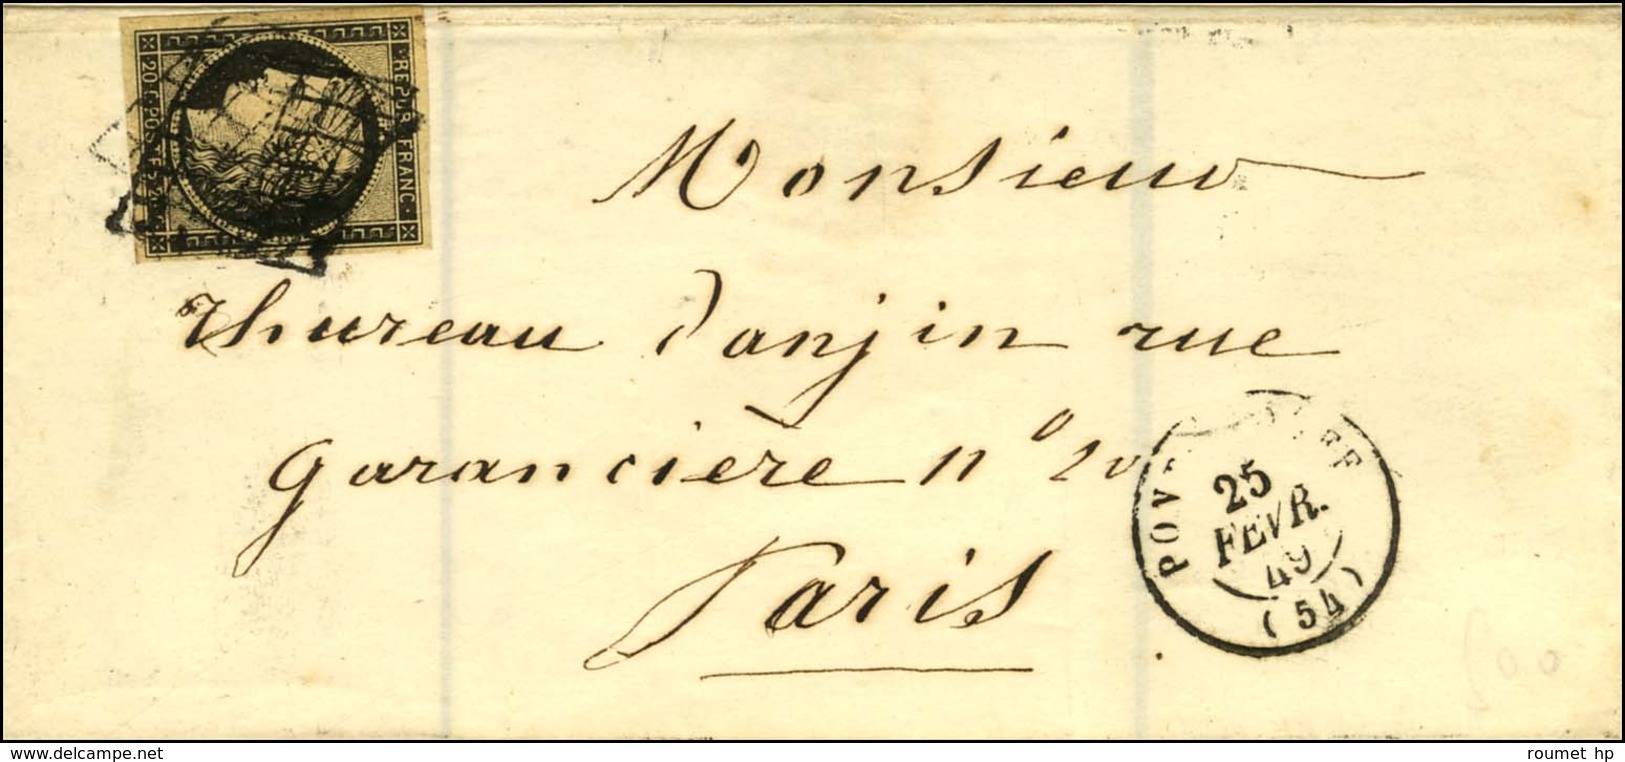 REPUB. FRANC.
20 C. POSTES 20 C.
Monsieur
Thureau Danjin rue
Garancière n° 20
Paris
25
FEVR.
49
(54)
www.delcampe.net
roumet hp